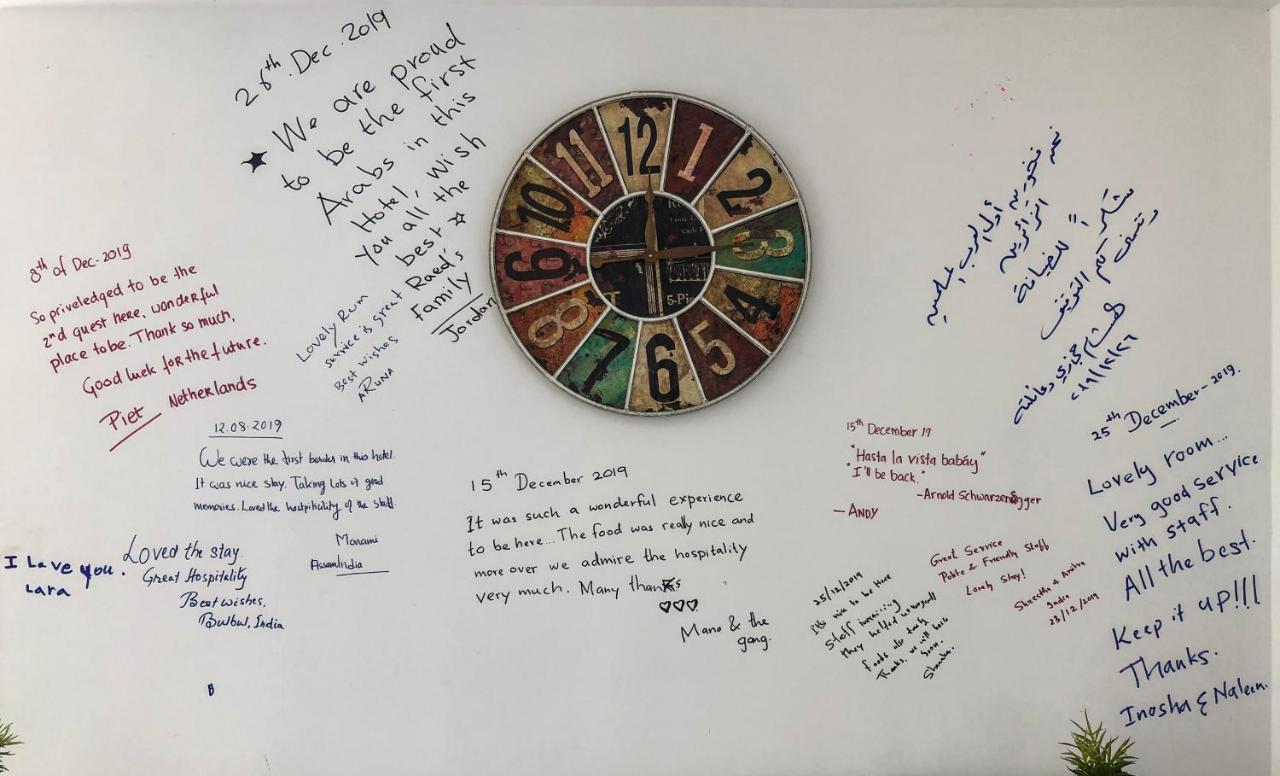 26th. Dec. 2019
★ We are proud
to be the first
Arabs in this
Hotel, Wish
you all the
best ☆
Raed's
Family
Jordan
8th of Dec-2019
So priveledged to be the
2nd guest here, wonderful
place to be. Thank so much,
Good luck for the future.
Piet Netherlands
Lovely Rum
service is great
Best wishes
ARUNA
12.08.2019
We were the first border in this hotel.
It was nice stay. Taking lots of good
memories. Loved the hospitiality of the staff.
Monami
Assam India
I Love you.
Lara
Loved the stay.
Great Hospitality
Best wishes,
Bulbul, India
B
12
1
2
3
4
5
6
7
8
9
10
11
5-Pi
15th December 2019
It was such a wonderful experience
to be here... The food was really nice and
more over we admire the hospitality
very much. Many thanks
♡♡♡
Mano & the
gang.
نحن أول العرب المسلمين
الزائرين
شكراً
للضيافة
هشام حجازي وعائلته
٢٠١٩/١٢/٢٦
15th December 19
"Hasta la vista babáy"
"I'll be back."
-Arnold Schwarzenegger
— ANDY
Great Service
Polite & Friendly Staff
Lovely Stay!
India
23/12/2019
25/12/2019
It's nice to be Here
Staff
they helped
foods also
Thanks. we will back
Soon.
25th December - 2019.
Lovely room...
Very good service
with staff.
All the best.
Keep it up!!!
Thanks.
Inosha & Nalein.